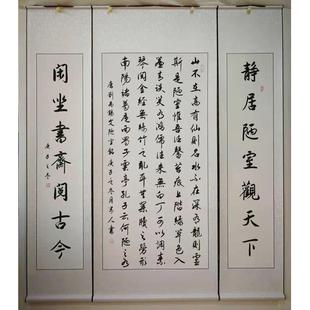 靜居陋室觀天下
山不在高有仙則名水不在深有龍則靈
斯是陋室惟吾德馨苔痕上階綠草色入
簾青談笑有鴻儒往來無白丁可以調素
琴閱金經無絲竹之亂耳無案牘之勞形
南陽諸葛廬西蜀子雲亭孔子云何陋之有
唐劉禹錫文陋室銘庚子之冬月 人書
閑坐書齋閱古今
庚子冬